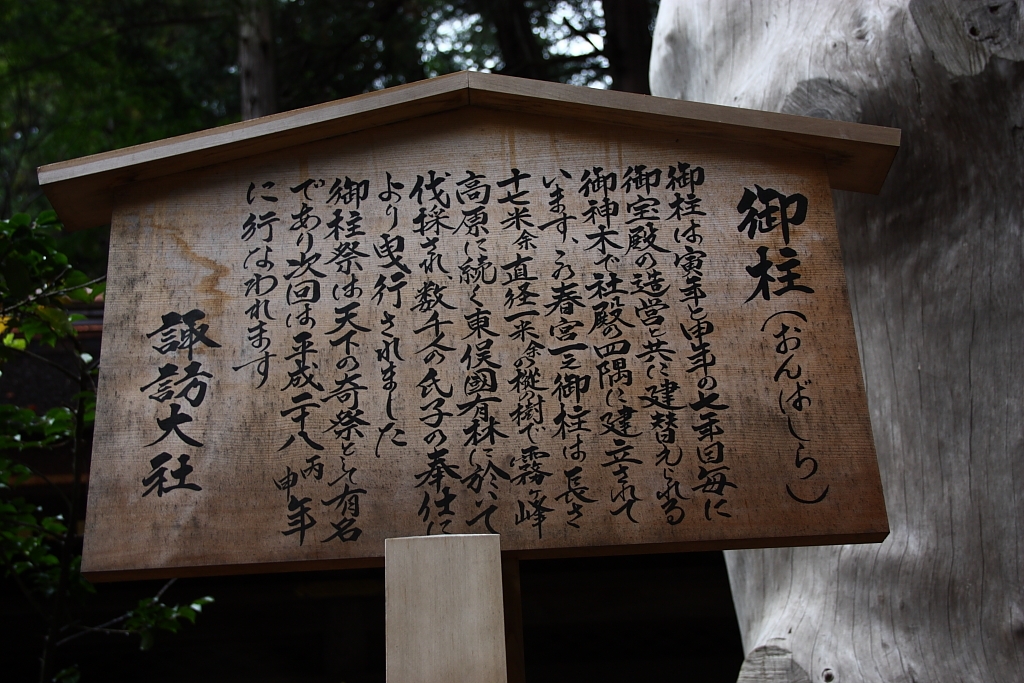 御柱（おんばしら）
御柱は寅年と申年の七年目毎に
御宝殿の造営と共に建替えられる
御神木で社殿の四隅に建立されて
います、この春宮一之御柱は長さ
十七米余直径一米余の樅の樹で霧ヶ峰
高原に続く東俣國有林に於いて
伐採され数千人の氏子の奉仕に
より曳行されました
御柱祭は天下の奇祭として有名
であり次回は平成二十八丙申年
に行なわれます
諏訪大社